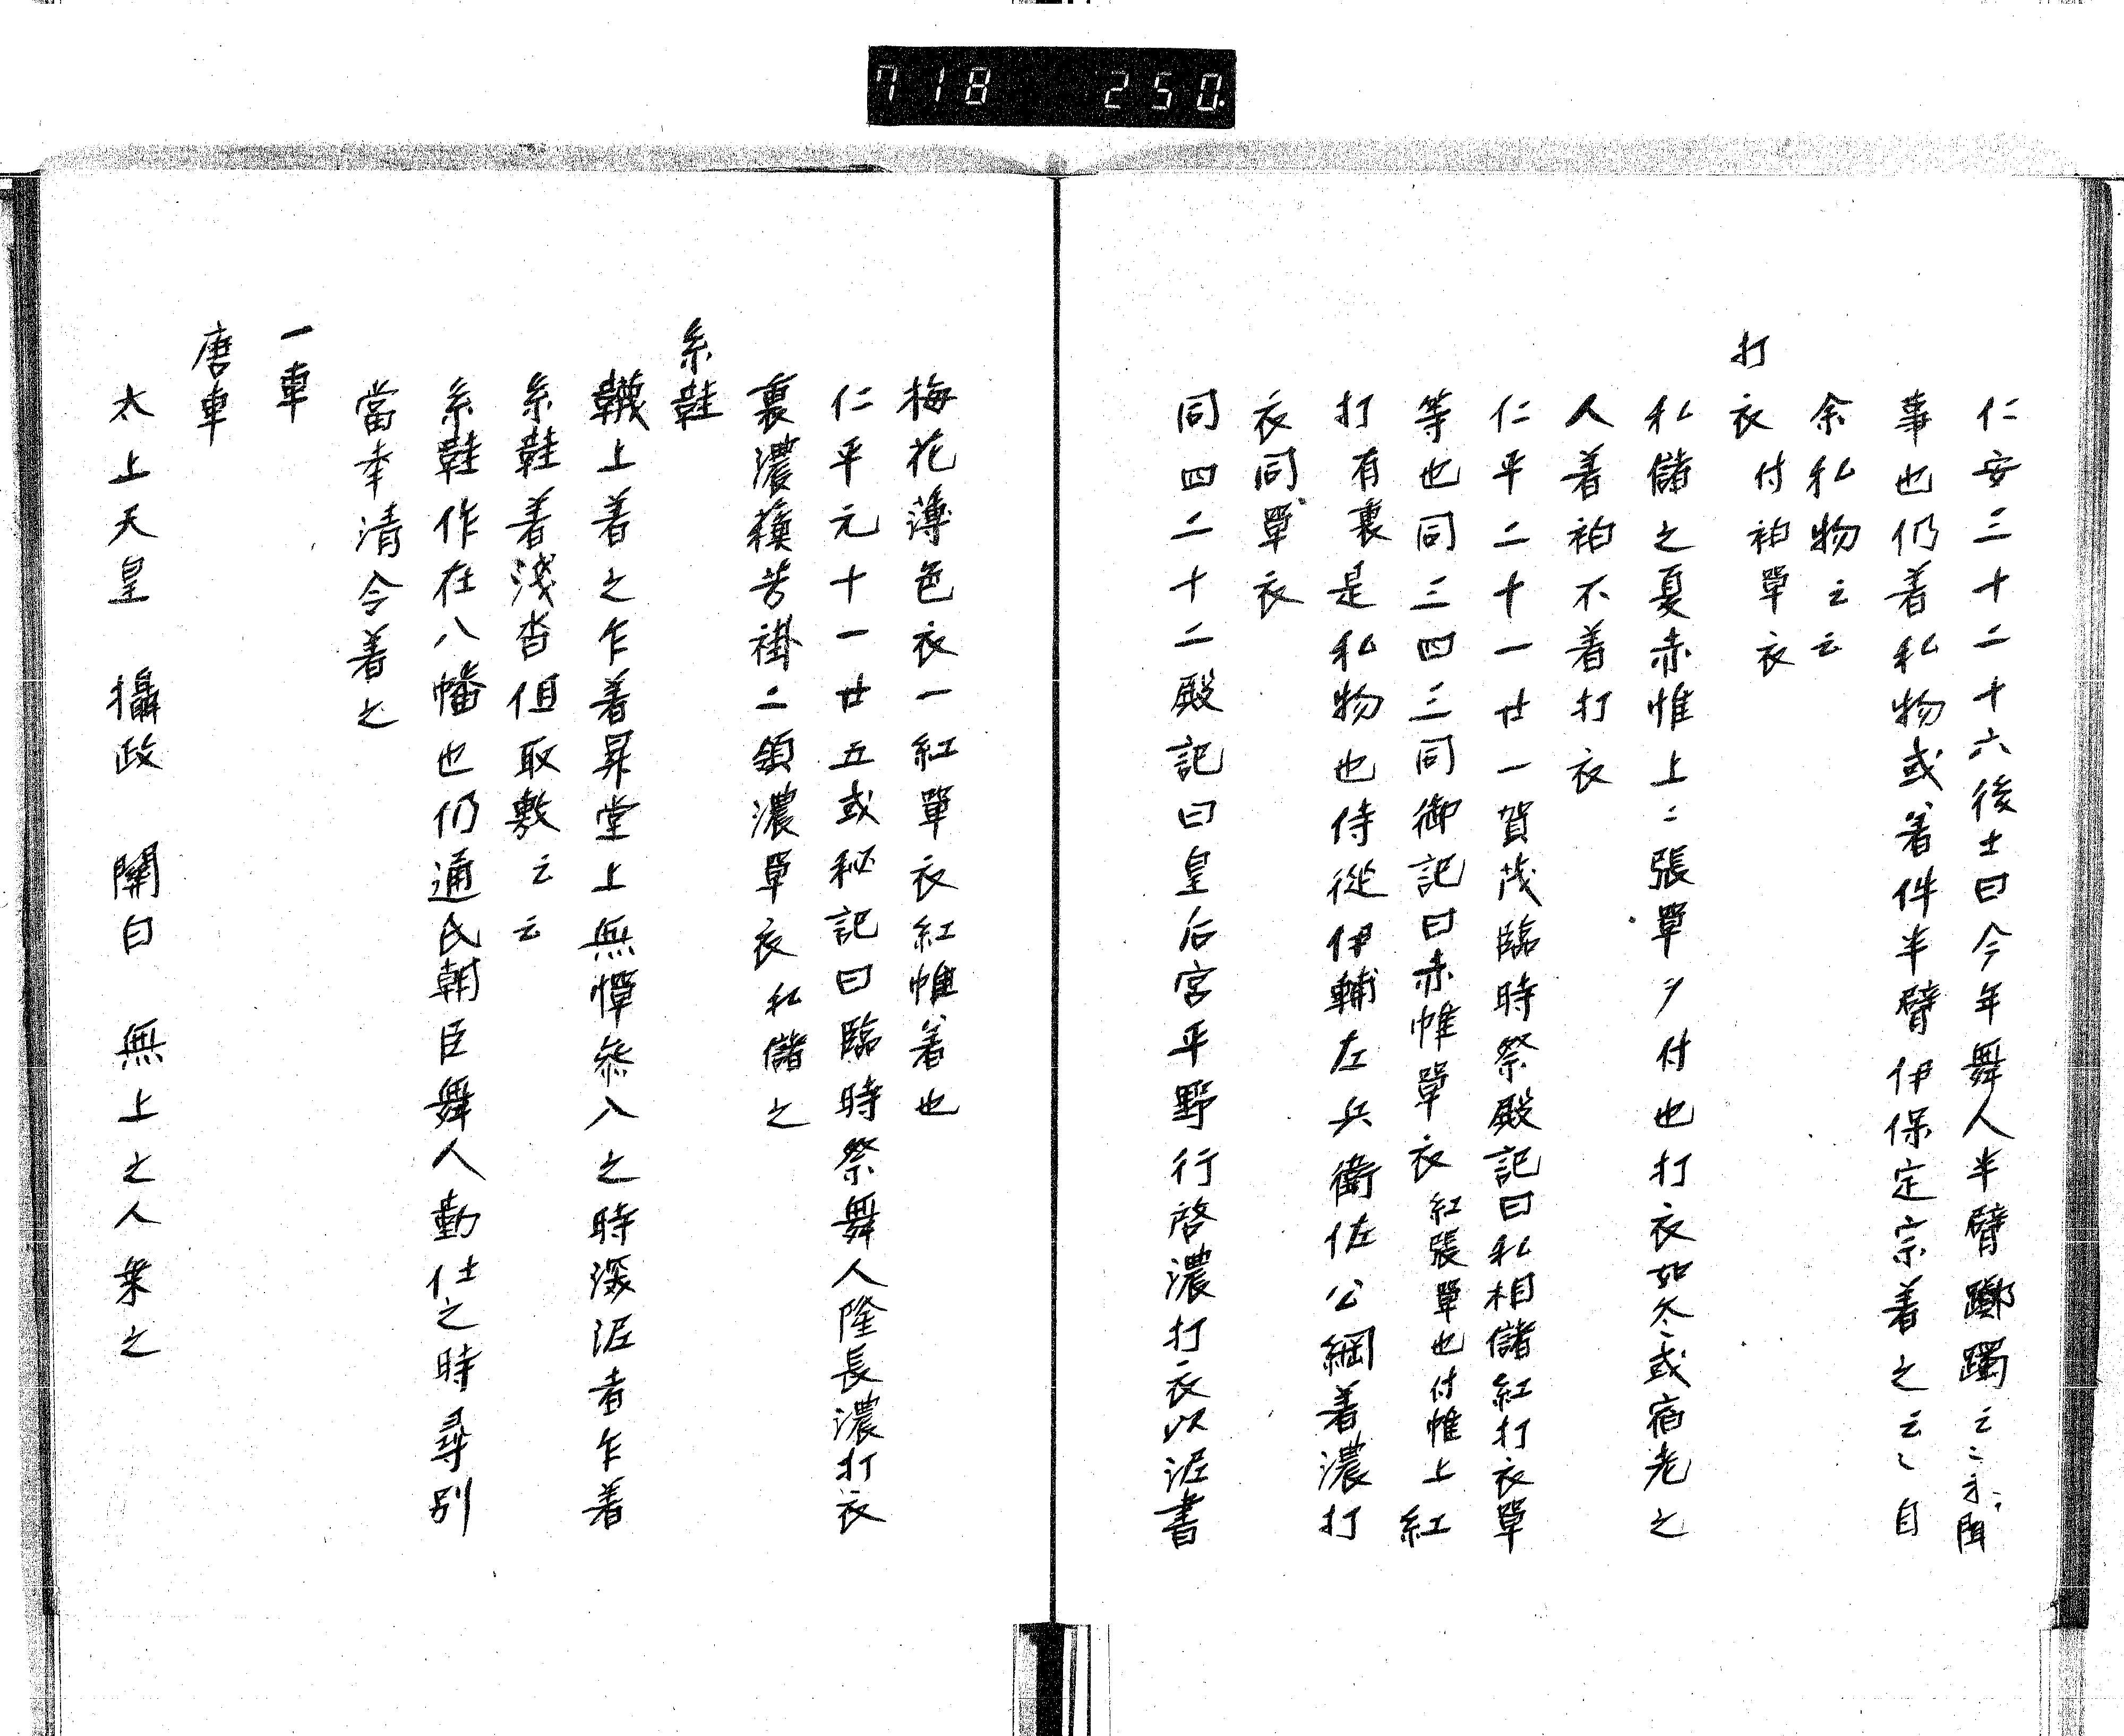 718 250.
仁安三十二十六後士曰今年舞人半臂躑躅云〻不聞
事也仍着私物或着件半臂伊保定宗着之云〻自
余私物云云
打衣付袙單衣
私儲之夏赤帷上〻張單ヲ付也打衣如冬或宿老之
人着袙不着打衣
仁平二十一廿一賀茂臨時祭殿記曰私相儲紅打衣單
等也同三四三同御記曰赤帷單衣紅張單也付帷上紅
打有裏是私物也侍從伊輔左兵衛佐公綱着濃打
衣同單衣
同四二十二殿記曰皇后宮平野行啓濃打衣以泥書
梅花薄色衣一紅單衣紅帷着也
仁平元十一廿五或秘記曰臨時祭舞人隆長濃打衣
裏濃蘓芳褂二領濃單衣私儲之
糸鞋
韈上着之乍着昇堂上無憚參入之時深泥者乍着
糸鞋着淺沓但取敷云云
糸鞋作在八幡也仍通氏朝臣舞人勤仕之時尋別
當幸清令着之
一車
唐車
太上天皇 攝政 關白 無上之人乗之